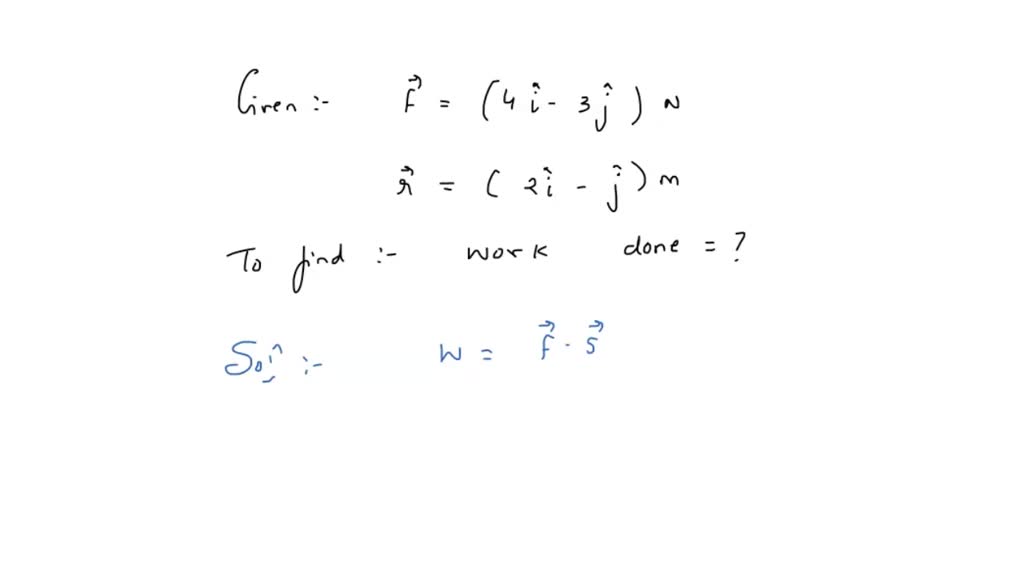 Given :- F⃗ = (4î - 3ĵ) N
r⃗ = (2î - ĵ) m
To find :- work done = ?
Sol^n :- W = F⃗ . S⃗